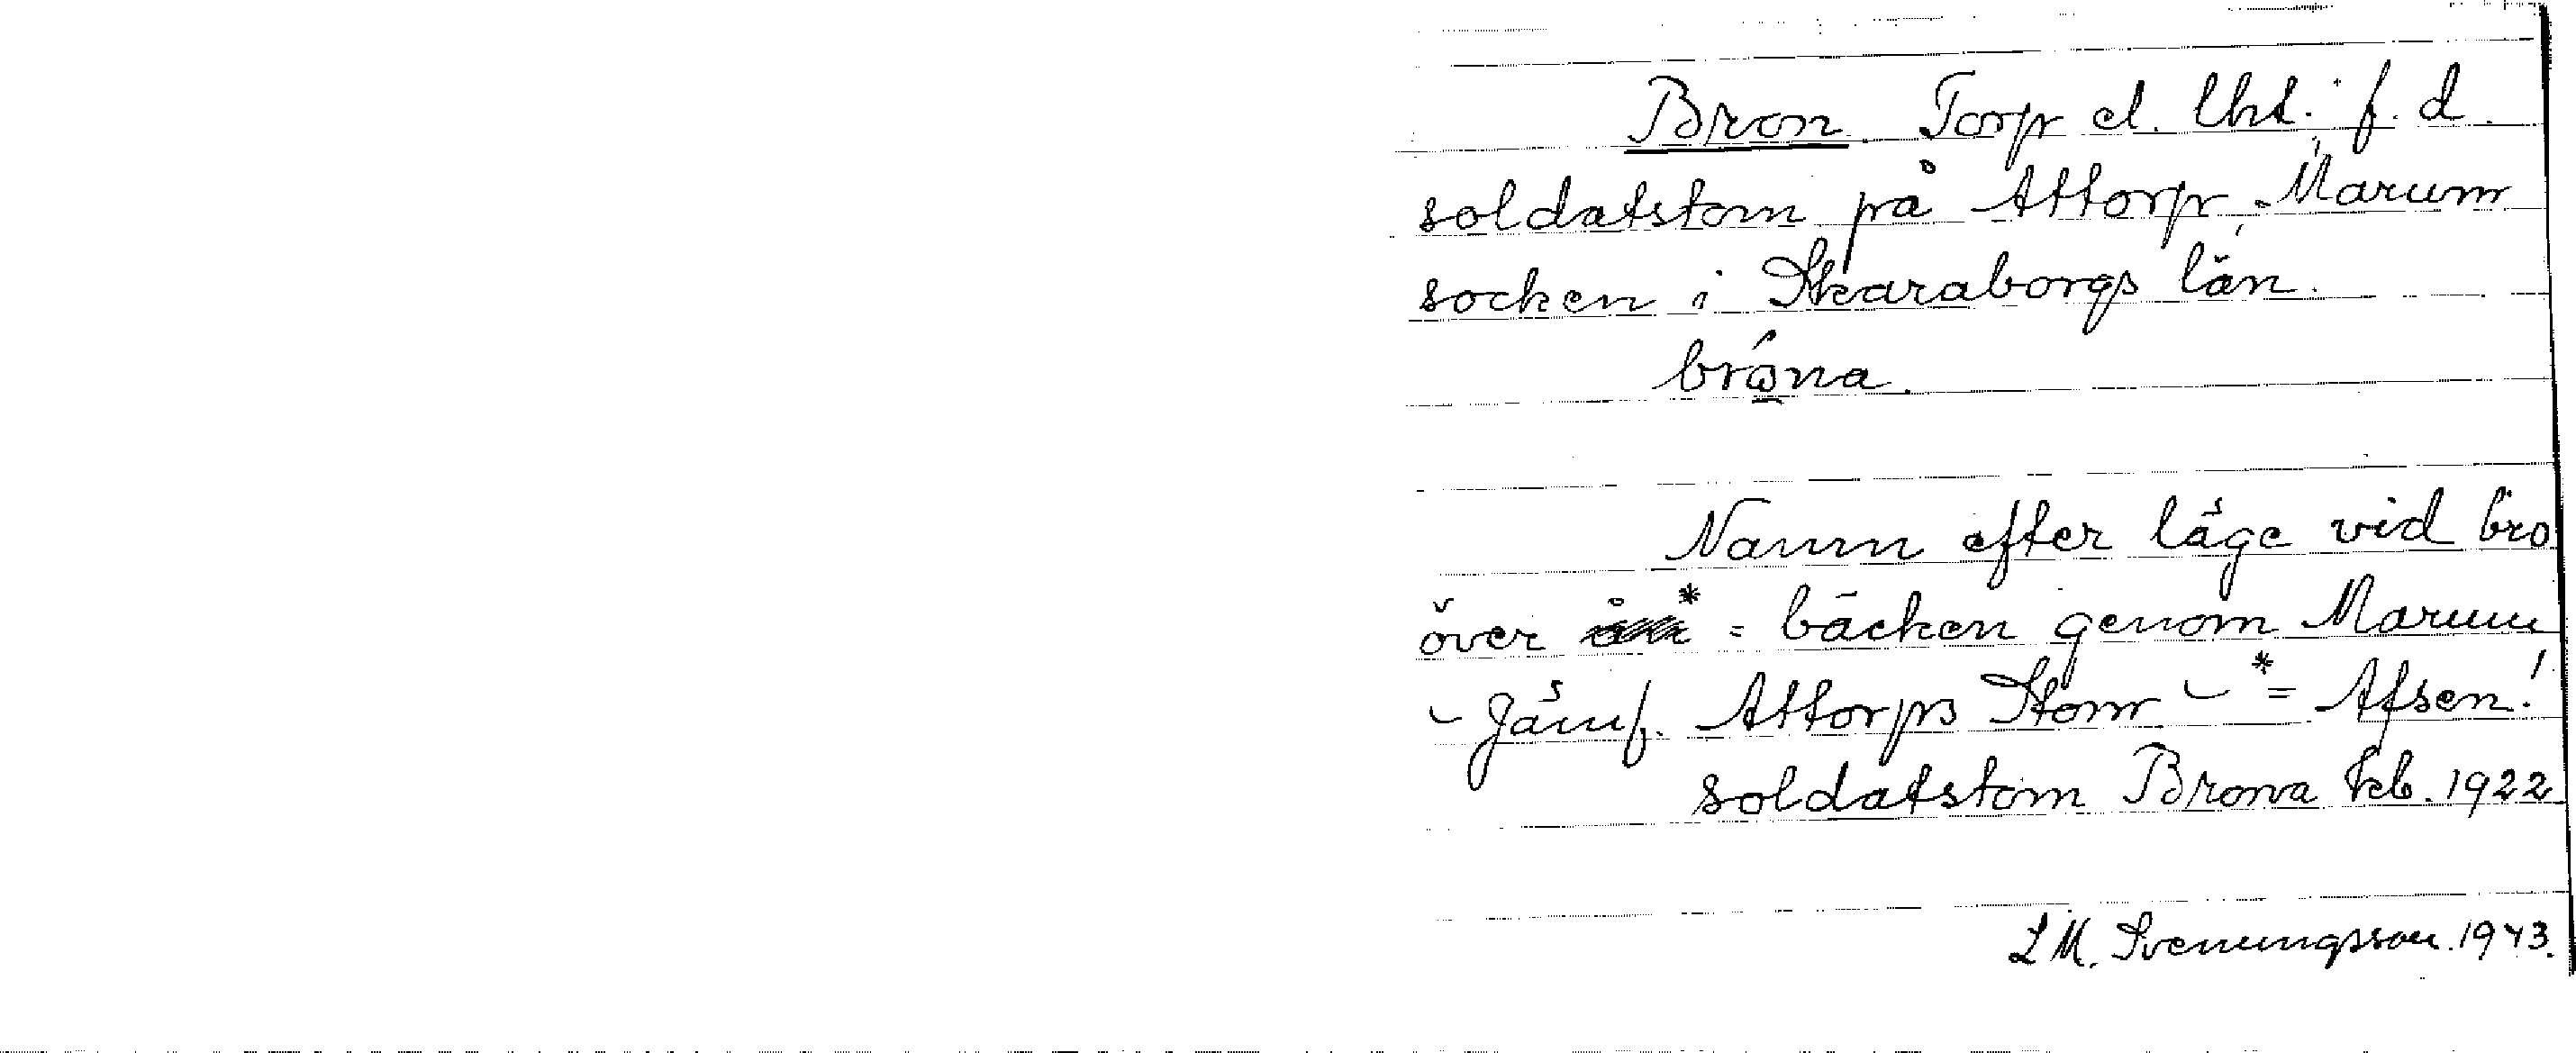 Bron Torp el. lht. f. d.
soldatstom på Attorp, Marum
socken i Skaraborgs län.
bro᷄na.
Namn efter läge vid bro
över * = bäcken genom Marum
- Jämf. Attorps Stom - * = Afsen!
soldatstom Brona kb. 1922
L M. Svenungsson. 1943.